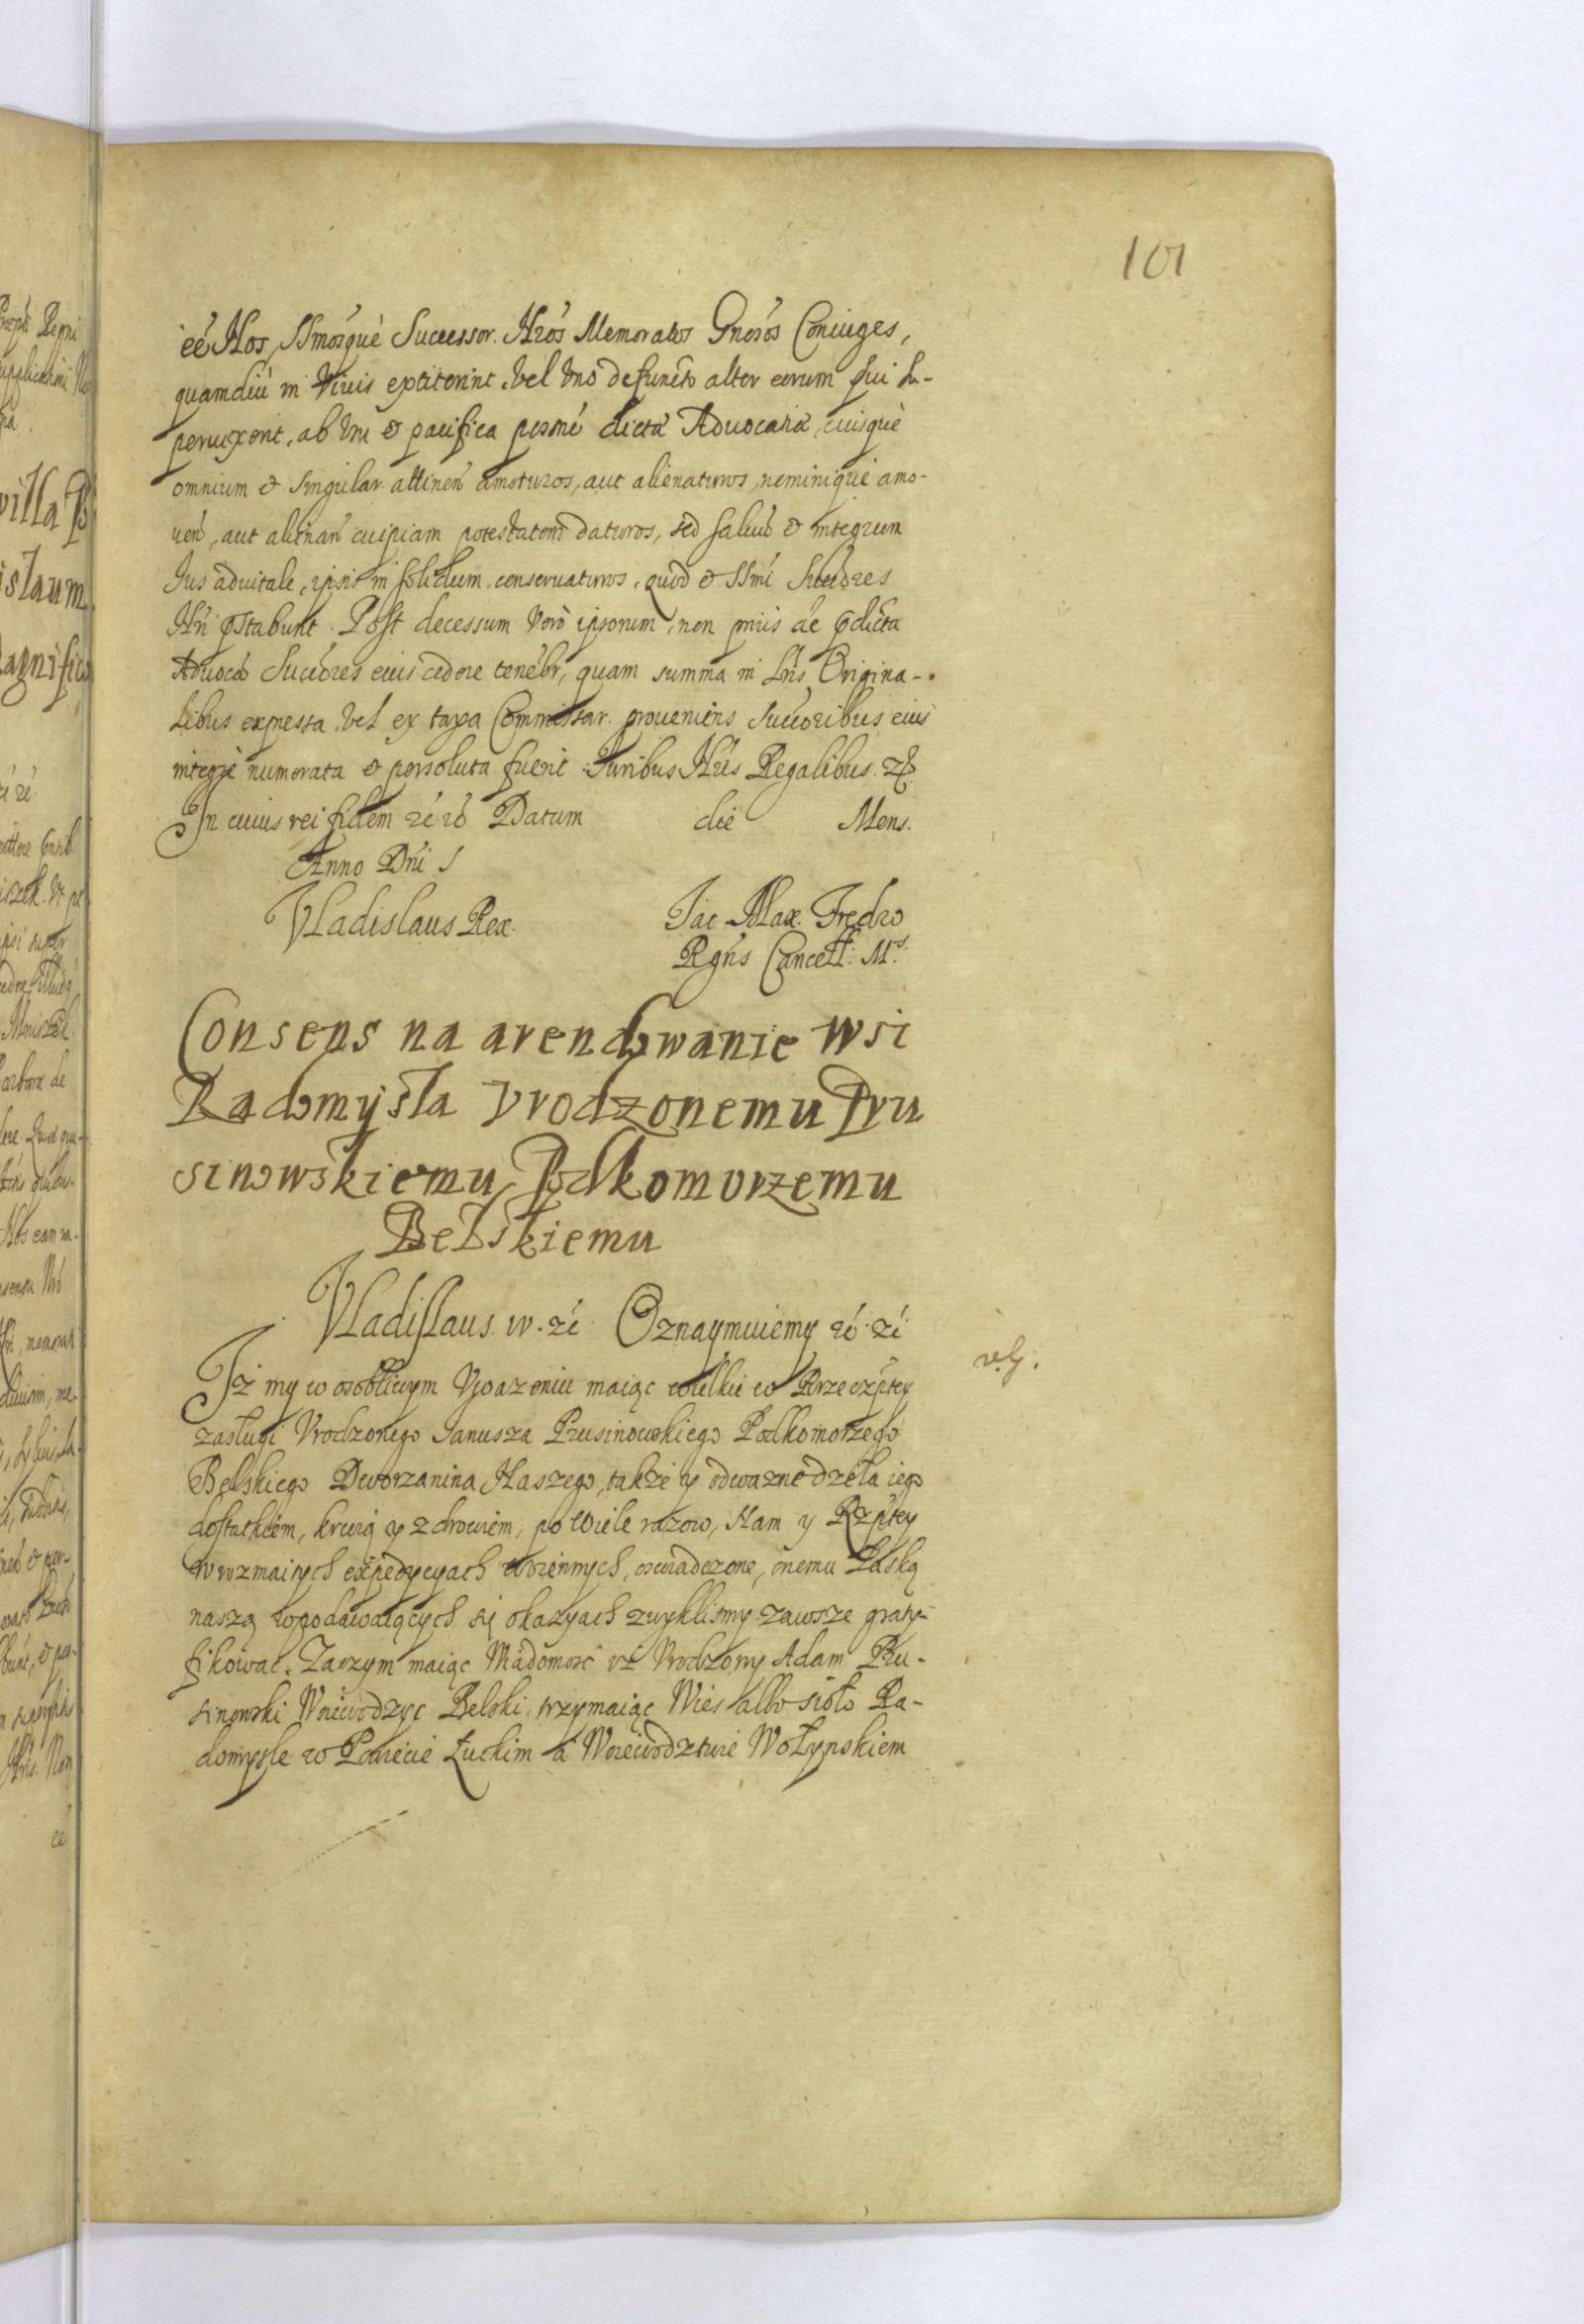 101
eé Nos, SSmosque Successor. Nros Memoratos Gnosos Coniuges,
quamdiu in Vivis extiterint, vel Vno defuncto alter eorum sui su-
peruixerit, ab vsu et pacifica possné dicta Advocatia, eiusque
omnium et singular. attinen amoturos, aut alienaturos, neminique amo-
uen, aut alienan cuipiam potestatem daturos, sed saluu et integrum
Ius aduitale, ipsis in solidum conseruaturos, quod et SSmi Succores
Nri pstabunt. Post decessum Vero ipsorum, non prius de pdicta
Advoca Succores eius cedere teneb̃r, quam summa in Lris Origina-
libus expressa, vel ex taxa Commissar. proueniens Succoribus eius
integre numerata et persoluta fuerit. Iuribus Nris Regalibus. zc
In cuius rei fidem zé zé Datum die Mens.
Anno Dni
Vladislaus Rex. Jac Max. Fredro
Rgñs Cancell: Mr.
Consens na arendowanie wsi
Radomyśla Vrodzonemu Pru
sinowskiemu Podkomorzemu
Bełskiemu
Vladislaus w. zé. Oznaymuiemy zé. zé
Iż my w osobliwym Vważeniu maiąc wielkie w Rzeczptey
vig.
zasługi Vrodzonego Janusza Prusinowskiego Podkomorzego
Bełskiego Dworzanina Naszego, także y odważne dzieła iego
dostatkiem, krwią y zdrowiem, po wiele razow, Nam y Rzptey
w rozmaitych expedycyach woiennych, oswiadczone, onemu Łaską
naszą wpodawaiących się okazyach zwyklismy zawsze graty-
fikować. Zaczym maiąc Wiadomość iż Vrodzony Adam Pru-
sinowski Woiewodzyc Bełski, trzymaiąc Wies albo sioło Ra-
domysle w Powiecie Łuckim a Woiewodztwie Wołynskiem